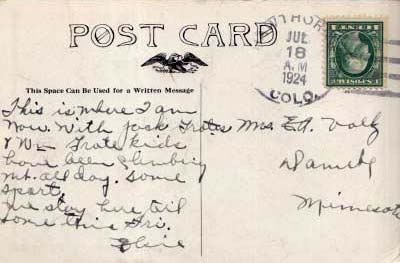 POST CARD
JUL
18
A.M
1924
COLO.
This Space Can Be Used for a Written Message
This is where I am
now. With Jack Trotes
kids
have been climbing
mt. all day. Some
sport.
We stay here til
some this Fri.
Elsie
Mrs. Ed.
Minnesota